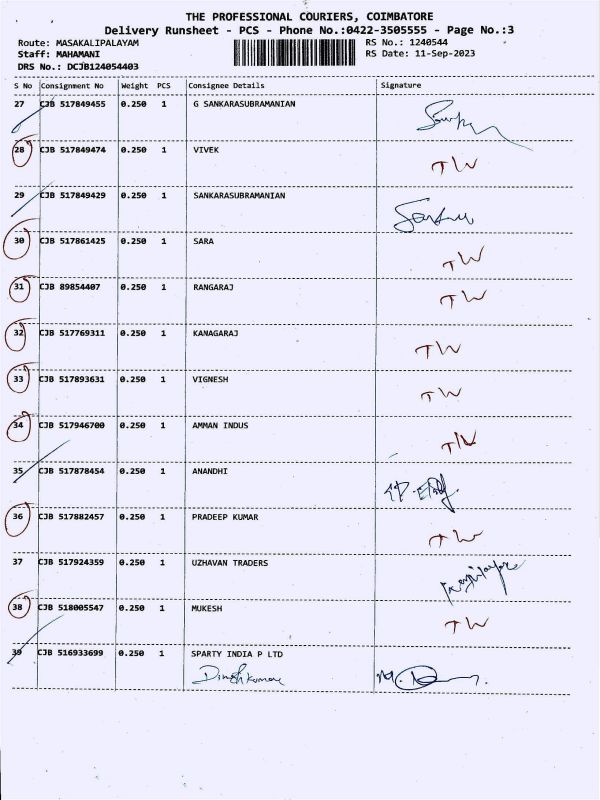 THE PROFESSIONAL COURIERS, COIMBATORE
Delivery Runsheet - PCS - Phone No.:0422-3505555 - Page No.:3
Route: MASAKALIPALAYAM RS No.: 1240544
Staff: MAHAMANI RS Date: 11-Sep-2023
DRS No.: DCJB124054403
S No Consignment No Weight PCS Consignee Details Signature
27 CJB 517849455 0.250 1 G SANKARASUBRAMANIAN
28 CJB 517849474 0.250 1 VIVEK TW
29 CJB 517849429 0.250 1 SANKARASUBRAMANIAN
30 CJB 517861425 0.250 1 SARA TW
31 CJB 89854407 0.250 1 RANGARAJ TW
32 CJB 517769311 0.250 1 KANAGARAJ TW
33 CJB 517893631 0.250 1 VIGNESH TW
34 CJB 517946700 0.250 1 AMMAN INDUS TW
35 CJB 517878454 0.250 1 ANANDHI
36 CJB 517882457 0.250 1 PRADEEP KUMAR TW
37 CJB 517924359 0.250 1 UZHAVAN TRADERS
38 CJB 518005547 0.250 1 MUKESH TW
39 CJB 516933699 0.250 1 SPARTY INDIA P LTD
Dineshkumar